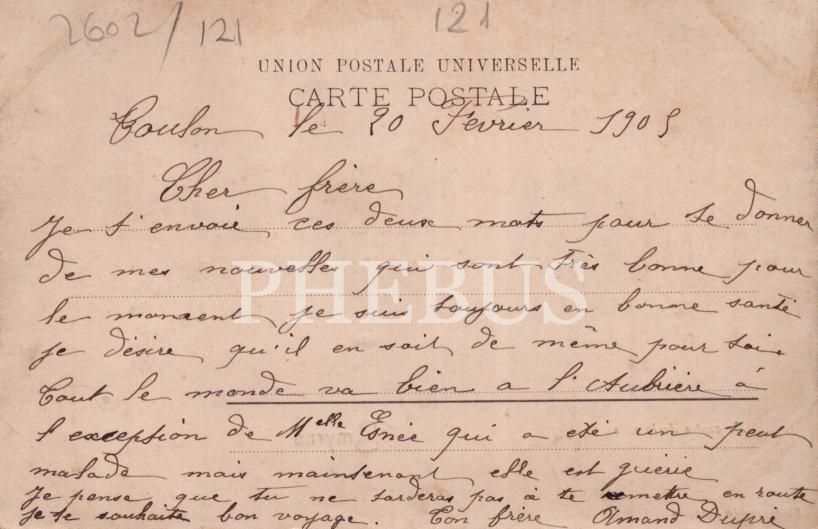 2602/121 121
UNION POSTALE UNIVERSELLE
CARTE POSTALE
Toulon le 20 Février 1905
Cher frère
Je t'envoie ces deux mots pour te donner
de mes nouvelles qui sont très bonne pour
PHEBUS
le moment je suis toujours en bonne santé
je désire qu'il en soit de même pour toi.
Tout le monde va bien a l'Aubrière à
l'exception de Melle Esnée qui a eté un peut
malade mais maintenant elle est guérie
Je pense que tu ne tarderas pas à te remettre en route
je te souhaite bon voyage. Ton frère Amand Dupré